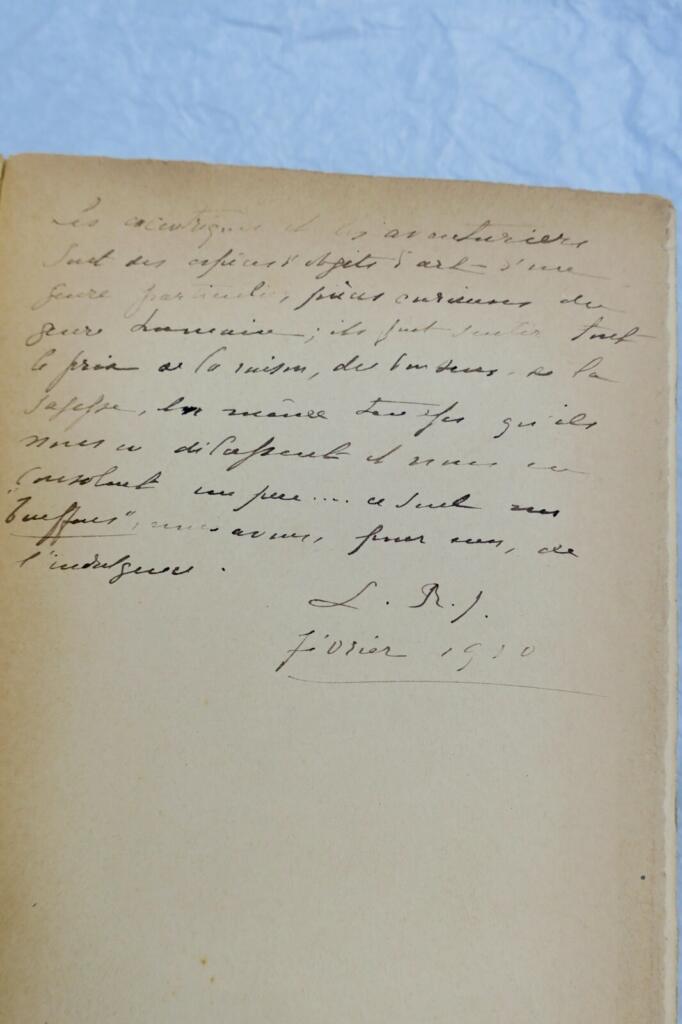 Les excentriques et les aventuriers
sont des espèces d'objets d'art d'une
genre particulier, pièces curieuses du
genre humain ; ils font sentir tout
le prix de la raison, du bon sens, de la
sagesse, en même temps qu'ils
nous en délassent et nous en
consolent un peu .... ce sont nos
"bouffons", nous avons, pour eux, de
l'indulgence .
L. R. J.
février 1910